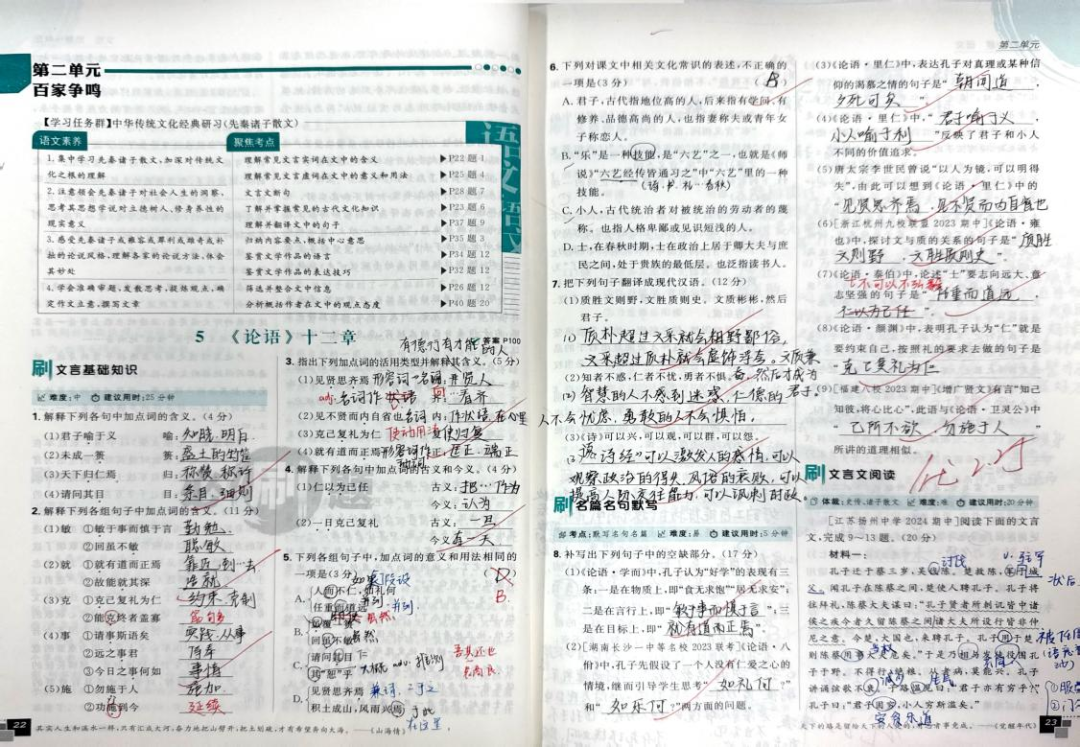 第二单元
百家争鸣
【学习任务群】中华传统文化经典研习(先秦诸子散文)
语文素养
聚焦考点
1.集中学习先秦诸子散文,加深对传统文
化之根的理解
2.注意领会先秦诸子对社会人生的洞察,
思考其思想学说对立德树人、修身养性的
现实意义
3.感受先秦诸子或雍容或犀利或雄奇或朴
拙的论说风格,理解各家的论说方法,体会
其妙处
4.学会准确审题,发散思考,提炼观点,确
定作文立意,撰写文章
理解常见文言实词在文中的含义 P22题1
理解常见文言虚词在文中的意义和用法 P25题4
文言文断句 P28题7
了解并掌握常见的古代文化知识 P23题6
理解并翻译文中的句子 P37题9
归纳内容要点,概括中心意思 P35题3
鉴赏文学作品的语言 P34题12
鉴赏文学作品的表达技巧 P32题12
筛选并整合文中信息 P26题12
分析概括作者在文中的观点态度 P40题20
语文
5 《论语》十二章
答案P100
刷 文言基础知识
难度:中 建议用时:25分钟
1.解释下列各句中加点词的含义。(4分)
(1)君子喻于义 喻:知晓,明白
(2)未成一篑 篑:盛土的竹筐
(3)天下归仁焉 归:称赞,称许
(4)请问其目 目:条目,细则
2.解释下列各组句子中加点词的含义。(11分)
(1)敏 ①敏于事而慎于言 勤勉
②回虽不敏 聪敏
(2)就 ①就有道而正焉 靠近,到…去
②故能就其深
(3)克 ①克己复礼为仁 约束,克制
②能克终者盖寡 能够
(4)事 ①请事斯语矣 实践,从事
②远之事君 侍奉
③今日之事何如 事情
(5)施 ①勿施于人 施加
②功施到今 延续
有德行有才能的人
3.指出下列加点词的活用类型并解释其含义。(5分)
(1)见贤思齐焉 形容词→名词,
(2)见不贤而内自省也 名词 内:作状语,在心里
(3)克己复礼为仁 使动用法 使
(4)就有道而正焉 形容词作 正:匡正,端正
4.解释下列各句中加点词的古义和今义。(4分)
(1)仁以为己任 古义:把…作为
今义:认为
(2)一日克己复礼 古义:一旦
今义:一天
5.下列各组句子中,加点词的意义和用法相同的
一项是(3分) (D)
B.
A. 人而不仁,如礼何
任重而道远
回虽不敏
C. 请问其目
D. 见贤思齐焉
积土成山,风雨兴焉
在这里
6.下列对课文中相关文化常识的表述,不正确的
一项是(3分) (B)
A.君子,古代指地位高的人,后来指有学问、有
修养、品德高尚的人,也指妻称夫或青年女
子称恋人。
B.“乐”是一种技能,是“六艺”之一,也就是《师
说》“六艺经传皆通习之”中“六艺”里的一种
技能。
C.小人,古代统治者对被统治的劳动者的蔑
称。也指人格卑鄙或见识短浅的人。
D.士,在春秋时期,士在政治上居于卿大夫与庶
民之间,处于贵族的最低层。也泛指读书人。
7.把下列句子翻译成现代汉语。(12分)
(1)质胜文则野,文胜质则史。文质彬彬,然后
君子。
(1) 质朴超过文采就会粗野鄙俗,
文采超过质朴就会虚饰浮夸。文质兼
备,然后才成为
君子。
(2)知者不惑,仁者不忧,勇者不惧。
(2) 智慧的人不感到迷惑,仁德的
人不会忧虑,勇敢的人不会惧怕。
(3)《诗》可以兴,可以观,可以群,可以怨。
读《诗经》可以激发人的感情,可以
观察政治的得失、风俗的衰败,可以
提高人际交往能力,可以讽刺时政
刷 名篇名句默写
考点:默写名句名篇 难度:易 建议用时:5分钟
8.补写出下列句子中的空缺部分。(17分)
(1)《论语·学而》中,孔子认为“好学”的表现有三
条,一是在物质上,即“食无求饱”“居无求安”;
二是在言行上,即“敏于事而慎于言”;三
是在目标上,即“就有道而正焉”。
(2)[湖南长沙一中等名校2023联考]《论语·八
佾》中,孔子先假设了一个人没有仁爱之心的
情境,继而引导学生思考“如礼何?”
和“如乐何?”两方面的问题。
第二单元
(3)《论语·里仁》中,表达孔子对真理或某种信
仰的渴慕之情的句子是“朝闻道,
夕死可矣”
(4)《论语·里仁》中,“君子喻于义,
小人喻于利”反映了君子和小人
不同的价值追求。
(5)唐太宗李世民曾说“以人为镜,可以明得
失”,由此可以想到《论语·里仁》中的
“见贤思齐焉,见不贤而内自省也”
(6)[浙江杭州九校联盟2023期中]《论语·雍
也》中,探讨文与质的关系的句子是“质胜
文则野,文胜质则史”。
(7)《论语·泰伯》中,论述“士”要志向远大、意
士不可以不弘毅
志坚强的句子是“任重而道远,
仁以为己任”。
(8)《论语·颜渊》中,表明孔子认为“仁”就是
要约束自己,按照礼的要求去做的句子是
“克己复礼为仁”
(9)[福建八校2023期中]《增广贤文》有言“知己
知彼,将心比心”,此语与《论语·卫灵公》中
“己所不欲,勿施于人”
所讲的道理相似。
刷 文言文阅读
优 2.25
体裁:史传、诸子散文 难度:难 建议用时:20分钟
[江苏扬州中学2024期中]阅读下面的文言
文,完成9~13题。(20分)
材料一:
孔子迁于蔡三岁,吴伐陈。楚救陈,军于城
父。闻孔子在陈蔡之间,楚使人聘孔子。孔子将
往拜礼,陈蔡大夫谋曰:“孔子贤者所刺讥皆中诸
侯之疾今者久留陈蔡之间诸大夫所设行皆非仲
尼之意。今楚,大国也,来聘孔子。孔子用于楚,
则陈蔡用事大夫危矣。”于是乃相与发徒役围孔
子于野。不得行,绝粮。从者病,莫能兴。孔子
讲诵弦歌不衰。子路愠见曰:“君子亦有穷乎?”
孔子曰:“君子固穷,小人穷斯滥矣。”
讨伐
v.驻军
安贫乐道
22
其实人生和温水一样,只有汇成大河,奋力地把山劈开,把土划破,才有希望奔向大海。——(山海情)
——(觉醒年代)
23